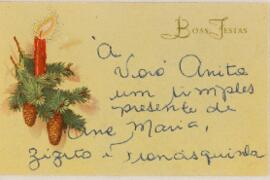 Boas Festas
À
Vovó Anita
um simples
presente de
Ana Maria,
Zizito e Francisquinha